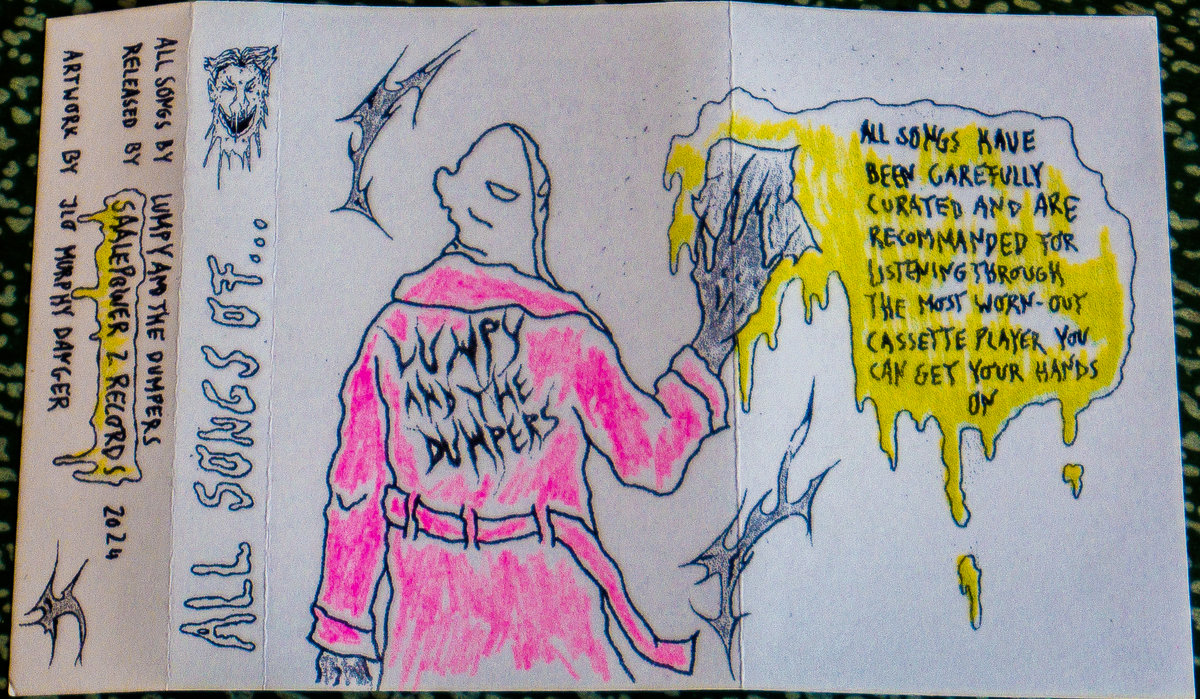 ALL SONGS BY LUMPY AM THE DUMPERS
RELEASED BY SAALEPOWER 2 RECORDS 2024
ARTWORK BY JLO MURPHY DAYGER
ALL SONGS OF...
LUMPY
AND THE
DUMPERS
ALL SONGS HAVE
BEEN CAREFULLY
CURATED AND ARE
RECOMMANDED FOR
LISTENING THROUGH
THE MOST WORN-OUT
CASSETTE PLAYER YOU
CAN GET YOUR HANDS
ON